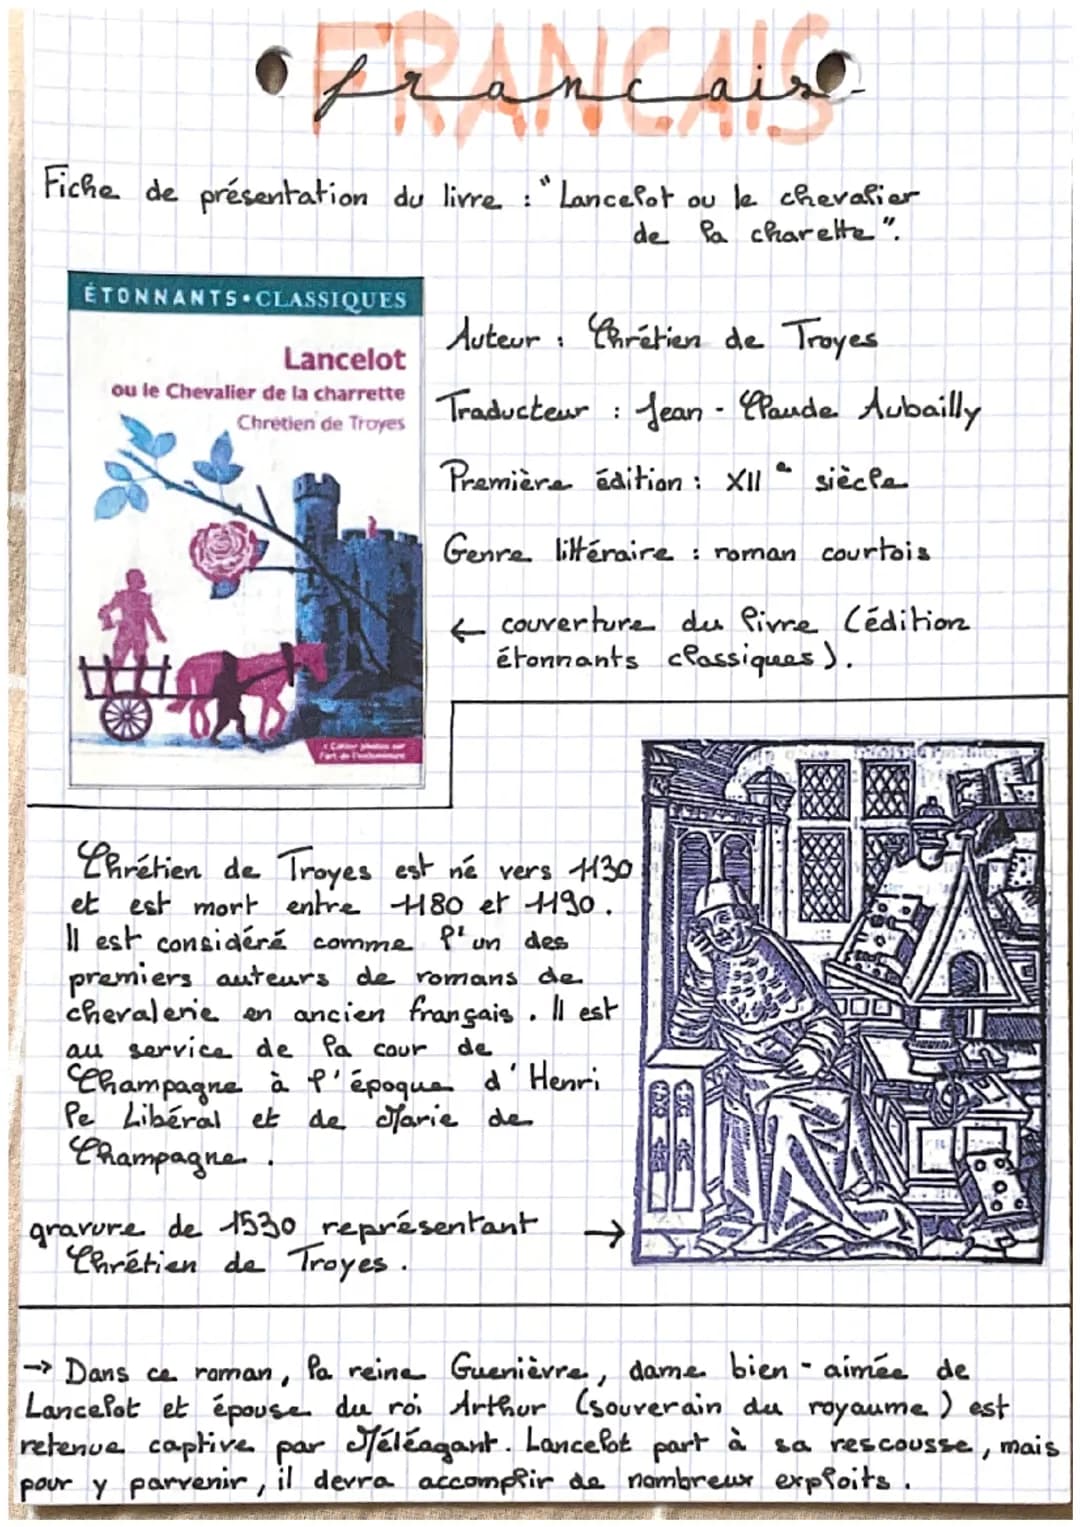 FRANCAIS
francais
Fiche de présentation du livre : "Lancelot ou le chevalier
de la charette".
ÉTONNANTS • CLASSIQUES
Lancelot
ou le Chevalier de la charrette
Chrétien de Troyes
+ Cahier photos sur
l'art de l'enluminure
Auteur : Chrétien de Troyes
Traducteur : Jean - Claude Aubailly
Première édition : XIIe siècle
Genre littéraire : roman courtois
← couverture du livre (édition
étonnants classiques).
Chrétien de Troyes est né vers 1130
et est mort entre 1180 et 1190.
Il est considéré comme l'un des
premiers auteurs de romans de
chevalerie en ancien français. Il est
au service de la cour de
Champagne à l'époque d'Henri
le Libéral et de Marie de
Champagne.
gravure de 1530 représentant →
Chrétien de Troyes.
→ Dans ce roman, la reine Guenièvre, dame bien - aimée de
Lancelot et épouse du roi Arthur (souverain du royaume) est
retenue captive par Méléagant. Lancelot part à sa rescousse, mais
pour y parvenir, il devra accomplir de nombreux exploits.